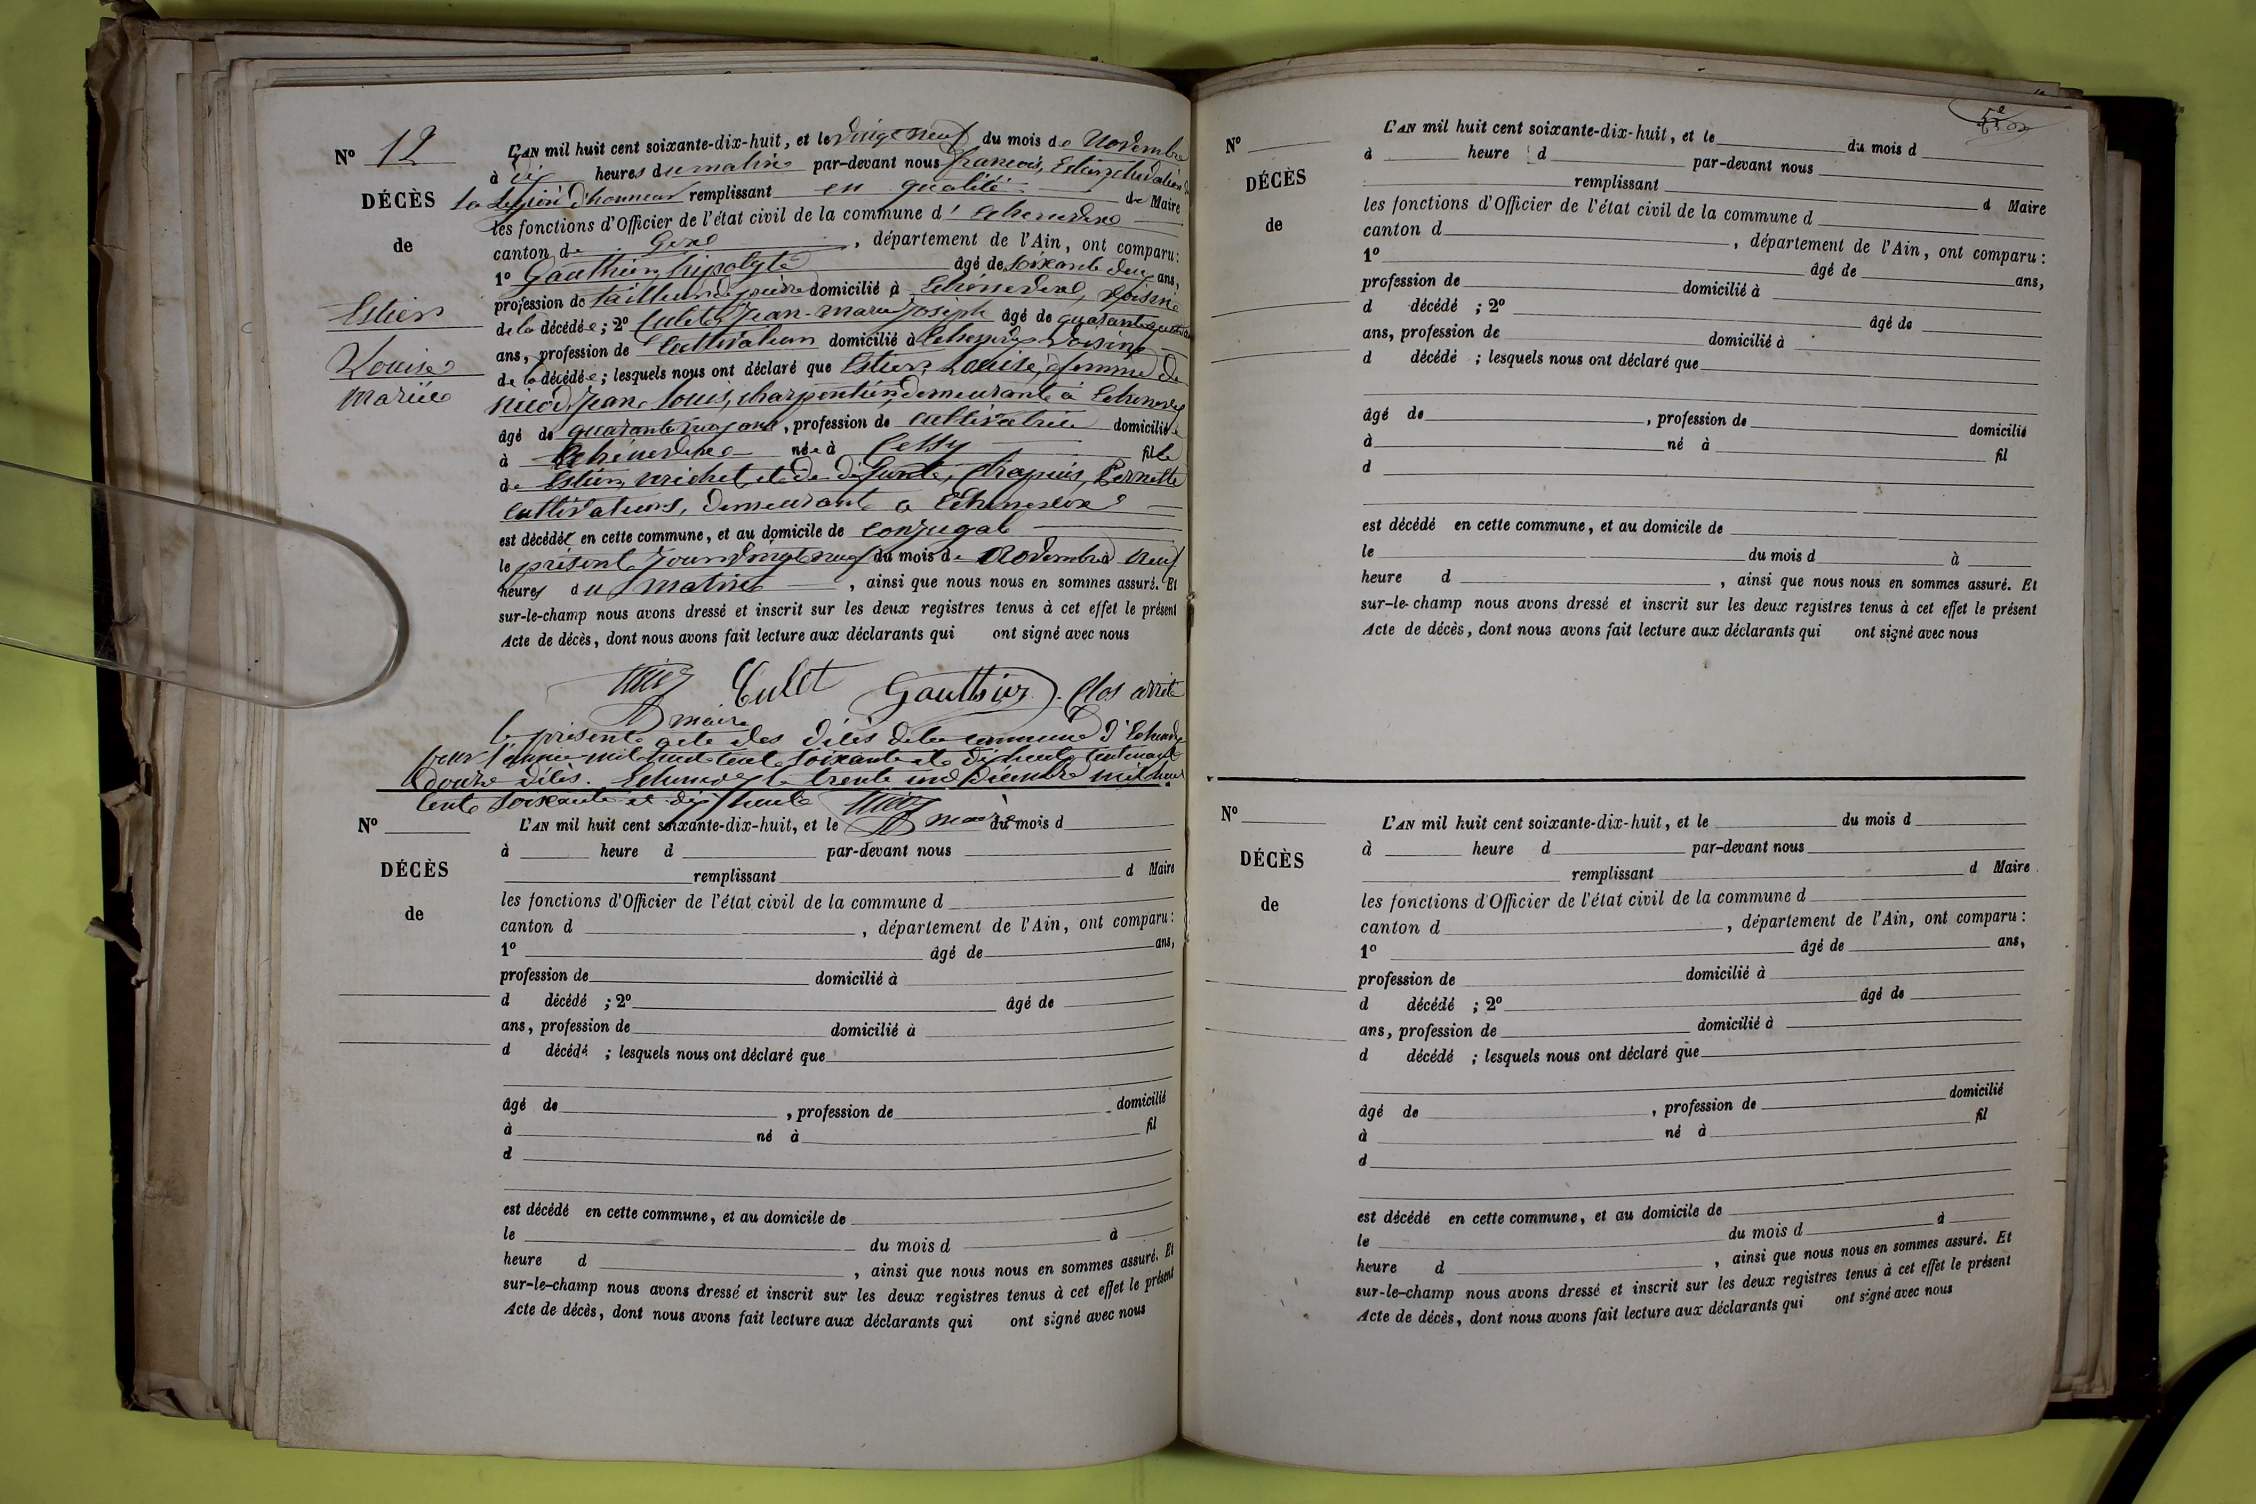 N° 12
DÉCÈS
de
Estier
Louise
mariée
L'AN mil huit cent soixante-dix-huit, et le vingt neuf du mois de Novembre
à dix heures du matin par-devant nous françois, Estier, chevalier de
la Légion d'honneur remplissant en qualité de Maire
les fonctions d'Officier de l'état civil de la commune d' Echenevex
canton de Gex, département de l'Ain, ont comparu:
1° Gauthier, hipolyte âgé de soixante deux ans,
profession de tailleur de pierre domicilié à Echenevex, voisin
de la décédée; 2° Culet, Jean-marie Joseph âgé de quarante
ans, profession de Cultivateur domicilié à Echenevex voisin
de la décédée; lesquels nous ont déclaré que Estier, Louise, femme de
nicod, Jean Louis, charpentier, demeurant à Echenevex
âgé de quarante ans, profession de cultivatrice domicilié
à Echenevex née à Cessy fille
de Estier, michel, et de défunte, Chapuis, Pernette
cultivateurs, demeurant à Echenevex
est décédée en cette commune, et au domicile de conjugal
le présent jour vingt neuf du mois de Novembre neuf
heures du matin, ainsi que nous nous en sommes assuré. Et
sur-le-champ nous avons dressé et inscrit sur les deux registres tenus à cet effet le présent
Acte de décès, dont nous avons fait lecture aux déclarants qui ont signé avec nous
Culet Gauthier. Clos arrêté
maire
le présent acte des décès de la commune d'Echenevex
pour l'année mil huit cent soixante et dix huit contenant
douze décès. Echenevex le trente un Décembre mil huit
cent soixante et dix huit maire
N°
DÉCÈS
de
L'AN mil huit cent soixante-dix-huit, et le du mois d
à heure d par-devant nous
remplissant d Maire
les fonctions d'Officier de l'état civil de la commune d
canton d , département de l'Ain, ont comparu:
1° âgé de ans,
profession de domicilié à
d décédé ; 2° âgé de
ans, profession de domicilié à
d décédé ; lesquels nous ont déclaré que
âgé de , profession de domicilié
à né à fil
d
est décédé en cette commune, et au domicile de
le du mois d à
heure d , ainsi que nous nous en sommes assuré. Et
sur-le-champ nous avons dressé et inscrit sur les deux registres tenus à cet effet le présent
Acte de décès, dont nous avons fait lecture aux déclarants qui ont signé avec nous
N°
DÉCÈS
de
L'AN mil huit cent soixante-dix-huit, et le du mois d
à heure d par-devant nous
remplissant d Maire
les fonctions d'Officier de l'état civil de la commune d
canton d , département de l'Ain, ont comparu:
1° âgé de ans,
profession de domicilié à
d décédé ; 2° âgé de
ans, profession de domicilié à
d décédé ; lesquels nous ont déclaré que
âgé de , profession de domicilié
à né à fil
d
est décédé en cette commune, et au domicile de
le du mois d à
heure d , ainsi que nous nous en sommes assuré. Et
sur-le-champ nous avons dressé et inscrit sur les deux registres tenus à cet effet le présent
Acte de décès, dont nous avons fait lecture aux déclarants qui ont signé avec nous
N°
DÉCÈS
de
L'AN mil huit cent soixante-dix-huit, et le du mois d
à heure d par-devant nous
remplissant d Maire
les fonctions d'Officier de l'état civil de la commune d
canton d , département de l'Ain, ont comparu:
1° âgé de ans,
profession de domicilié à
d décédé ; 2° âgé de
ans, profession de domicilié à
d décédé ; lesquels nous ont déclaré que
âgé de , profession de domicilié
à né à fil
d
est décédé en cette commune, et au domicile de
le du mois d à
heure d , ainsi que nous nous en sommes assuré. Et
sur-le-champ nous avons dressé et inscrit sur les deux registres tenus à cet effet le présent
Acte de décès, dont nous avons fait lecture aux déclarants qui ont signé avec nous